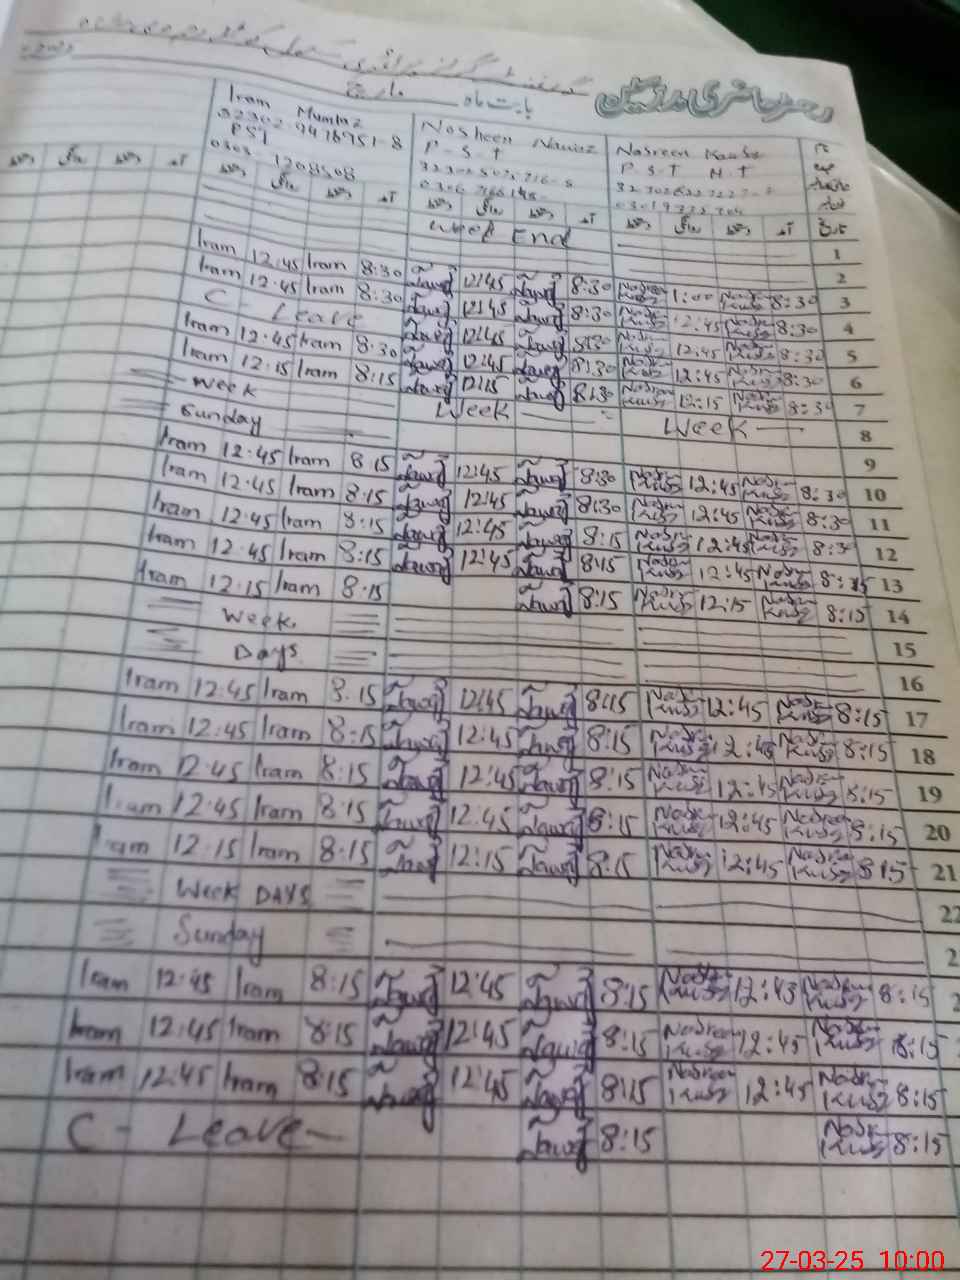 رجسٹر حاضری مدرسین
بابت ماہ مارچ
Iram Mumtaz
P S T
Nosheen Nawaz
P - S - T
Nasreen Kausar
P. S. T H T
دستخط روانگی دستخط آمد دستخط روانگی دستخط آمد دستخط روانگی دستخط آمد دستخط روانگی دستخط آمد تاریخ
Week End 1
2
Iram 12:45 Iram 8:30 Nawaz 12:45 Nawaz 8:30 Nasreen Kausar 1:00 Nasreen Kausar 8:30 3
Iram 12:45 Iram 8:30 Nawaz 12:45 Nawaz 8:30 Nasreen Kausar 12:45 Nasreen Kausar 8:30 4
C - Leave Nawaz 12:45 Nawaz 8:30 Nasreen Kausar 12:45 Nasreen Kausar 8:30 5
Iram 12:45 Iram 8:30 Nawaz 12:45 Nawaz 8:30 Nasreen Kausar 12:45 Nasreen Kausar 8:30 6
Iram 12:15 Iram 8:15 Nawaz 12:15 Nawaz 8:30 Nasreen Kausar 12:15 Nasreen Kausar 8:30 7
Week Week Week 8
Sunday 9
Iram 12:45 Iram 8:15 Nawaz 12:45 Nawaz 8:30 Nasreen Kausar 12:45 Nasreen Kausar 8:30 10
Iram 12:45 Iram 8:15 Nawaz 12:45 Nawaz 8:30 Nasreen Kausar 12:45 Nasreen Kausar 8:30 11
Iram 12:45 Iram 8:15 Nawaz 12:45 Nawaz 8:15 Nasreen Kausar 12:45 Nasreen Kausar 8:30 12
Iram 12:45 Iram 8:15 Nawaz 12:45 Nawaz 8:15 Nasreen Kausar 12:45 Nasreen Kausar 8:15 13
Iram 12:15 Iram 8:15 Nawaz 8:15 Nasreen Kausar 12:15 Nasreen Kausar 8:15 14
Week 15
Days 16
Iram 12:45 Iram 8:15 Nawaz 12:45 Nawaz 8:15 Nasreen Kausar 12:45 Nasreen Kausar 8:15 17
Iram 12:45 Iram 8:15 Nawaz 12:45 Nawaz 8:15 Nasreen Kausar 12:45 Nasreen Kausar 8:15 18
Iram 12:45 Iram 8:15 Nawaz 12:45 Nawaz 8:15 Nasreen Kausar 12:45 Nasreen Kausar 8:15 19
Iram 12:45 Iram 8:15 Nawaz 12:45 Nawaz 8:15 Nasreen Kausar 12:45 Nasreen Kausar 8:15 20
Iram 12:15 Iram 8:15 Nawaz 12:15 Nawaz 8:15 Nasreen Kausar 12:45 Nasreen Kausar 8:15 21
Week DAYS 22
Sunday 2
Iram 12:45 Iram 8:15 Nawaz 12:45 Nawaz 8:15 Nasreen Kausar 12:45 Nasreen Kausar 8:15 2
Iram 12:45 Iram 8:15 Nawaz 12:45 Nawaz 8:15 Nasreen Kausar 12:45 Nasreen Kausar 8:15
Iram 12:45 Iram 8:15 Nawaz 12:45 Nawaz 8:15 Nasreen Kausar 12:45 Nasreen Kausar 8:15
C - Leave Nawaz 8:15 Nasreen Kausar 8:15
27-03-25 10:00